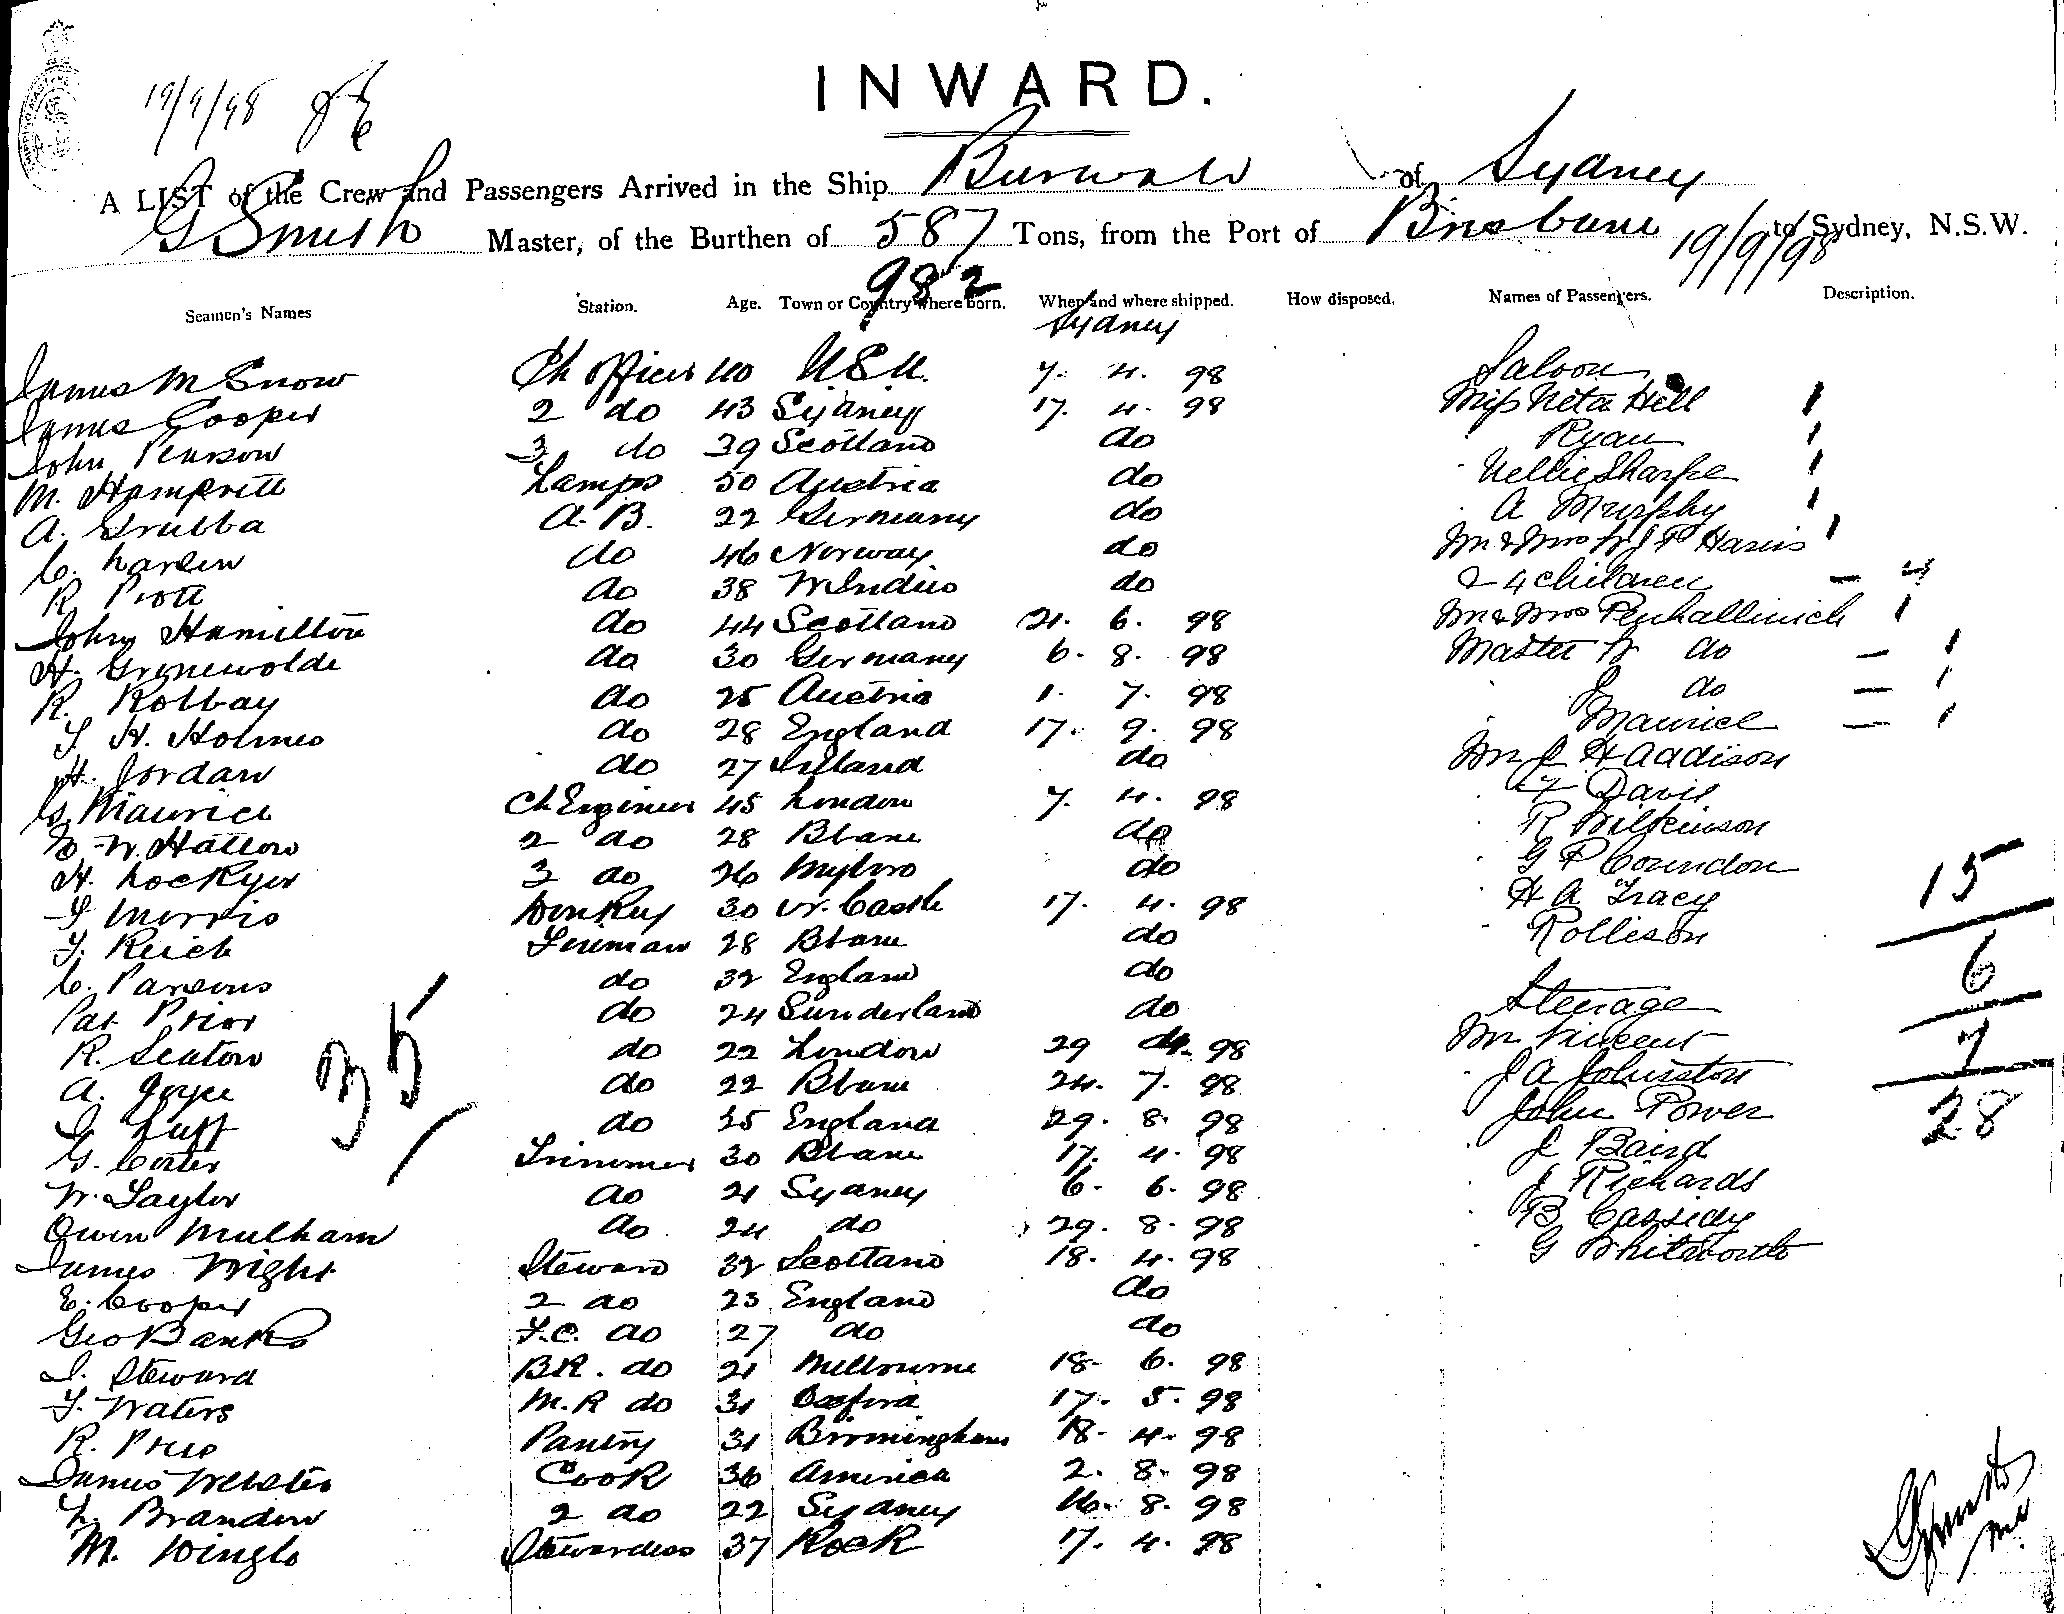 INWARD.
19/9/98
A LIST of the Crew and Passengers Arrived in the Ship Burwah of Sydney
G Smith Master, of the Burthen of 587 Tons, from the Port of Brisbane 19/9/98 to Sydney, N.S.W.
982
Seamen's Names Station. Age. Town or Country where born. When and where shipped. How disposed. Names of Passengers. Description.
Sydney
James M Snow Ch Officer 40 7. 4. 98 Saloon
James Cooper 2 do 43 Sydney 17. 4. 98 Miss Neta Hill 1
John Pearson 3 do 39 Scotland do Ryan 1
M. Lamps 50 Austria do Nellie Sharpe 1
A. Grubba A.B. 22 Germany do A Murphy 1
C. Larsen do 46 Norway do Mr & Mrs W J F Harris 1
R. Piott do 38 W Indies do & 4 children —
John Hamilton do 44 Scotland 21. 6. 98 Mr & Mrs Penhallinick 1
H. Gronewolde do 30 Germany 6. 8. 98 Master W do — 1
R. Kolbay do 25 Austria 1. 7. 98 J do — 1
H. Holmes do 28 England 17. 9. 98 Maurice — 1
H. Jordan do 27 Ireland do Mr J H Addison
G. Maurice Ch Engineer 45 London 7. 4. 98 Davis
W. Hatton 2 do 28 Bbane do R Wilkinson
H. Lockyer 3 do 26 Mybro do G P Corundon
Morris Donkey 30 N. Castle 17. 4. 98 H A Tracy
F. Reich Fireman 28 Bbane do Rollison
C. Parsons do 32 England do
Pat Prior do 24 Sunderland do Steerage
R. Seaton do 22 London 29 4. 98 Mr Vincent
A. Joyce do 22 Bbane 24. 7. 98 J A Johnston
Luff do 25 England 29. 8. 98 John Power
G. Coster Trimmer 30 Bbane 17. 4. 98 J Baird
W. Taylor do 21 Sydney 6. 6. 98 J Richards
Owen Mulham do 24 do 29. 8. 98 B Cassidy
James Wright Steward 32 Scotland 18. 4. 98 G Whitworth
E. Cooper 2 do 23 England do
Geo Banks F.C. do 27 do do
J. Steward B.R. do 21 Melbourne 18. 6. 98
F. Waters M.R do 31 Oxford 17. 5. 98
R. Pantry 31 Birmingham 18. 4. 98
James Webster Cook 36 America 2. 8. 98
L. Brandon 2 do 22 Sydney 16. 8. 98
M. Dingle Stewardess 37 Rock 17. 4. 98
35
15
6
7
28
G Smith